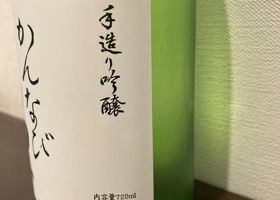 手造り吟醸
かんなび
内容量720ml